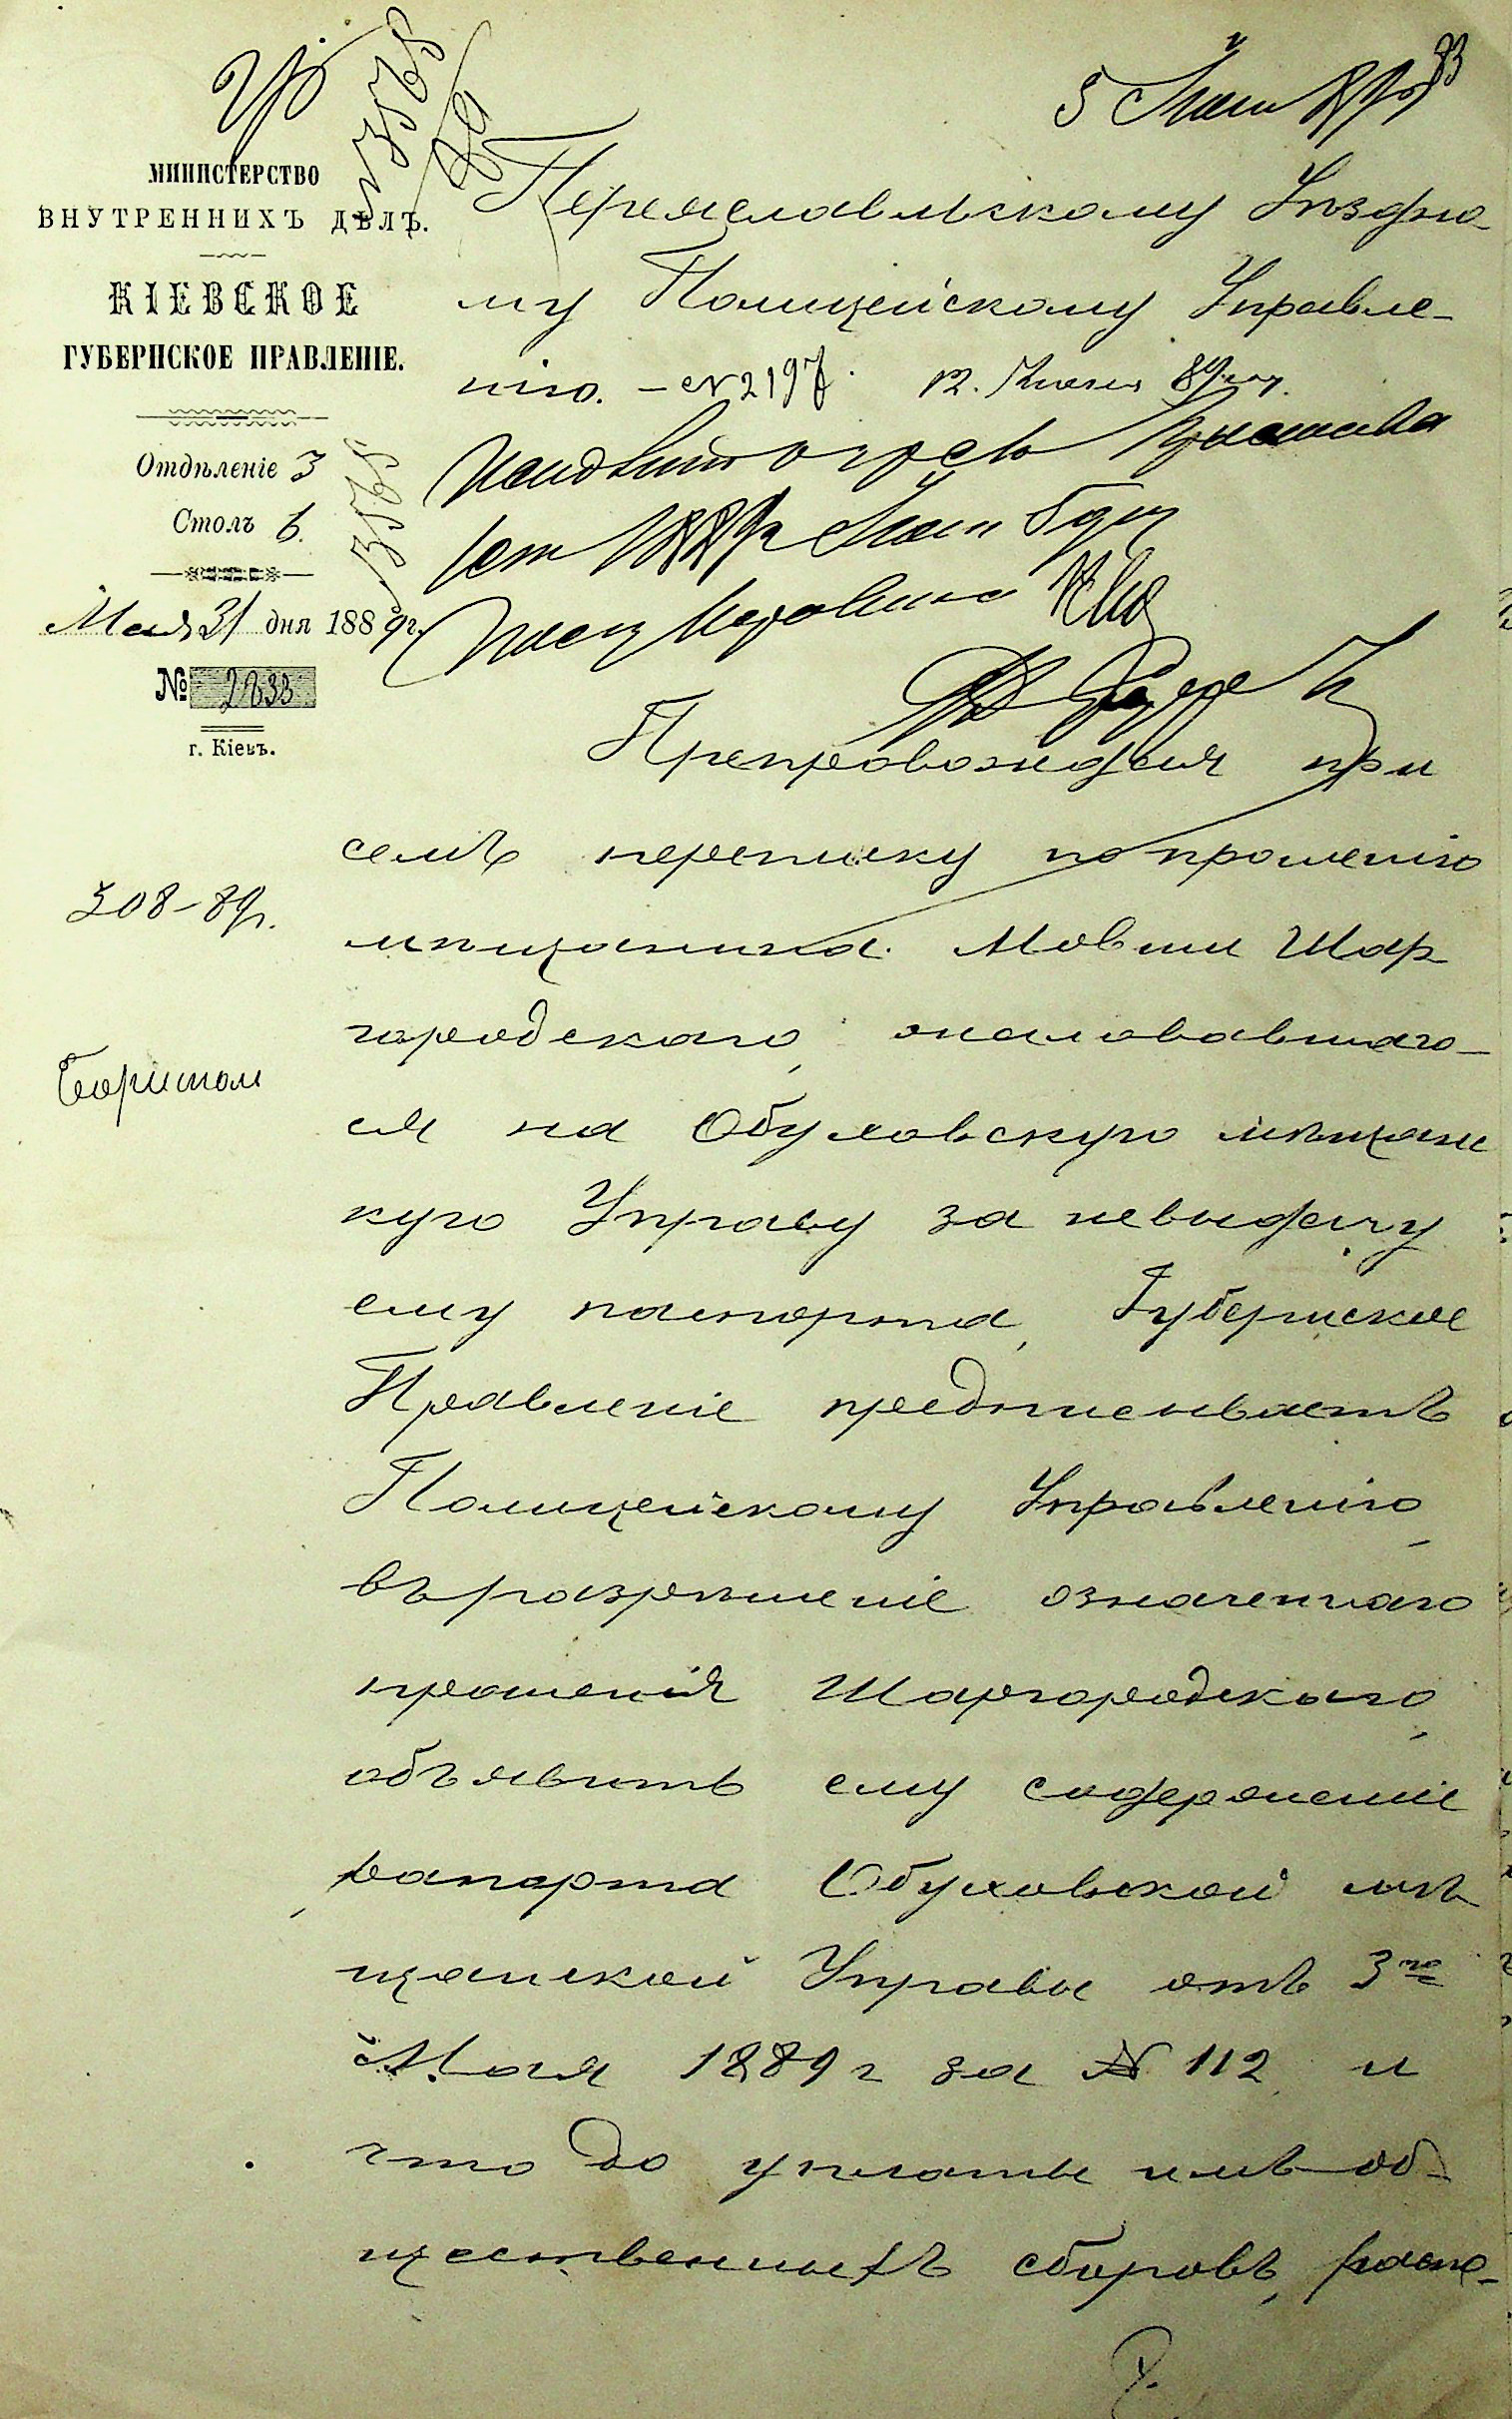 МИНИСТЕРСТВО
ВНУТРЕННИХЪ ДѢЛЪ.
КІЕВСКОЕ
ГУБЕРНСКОЕ ПРАВЛЕНІЕ.
Отдѣленіе 3
Столъ 6.
Мая 31 дня 1889 г.
№ 2833
г. Кіевъ.
308-89г.
Переяславльскому Уѣздно
му Полицейскому Управле-
нію. - № 2197 12.
Препровождая при
семъ переписку по прошенію
мѣщанина Мовши Шар
городскаго, жаловавшаго-
ся на Обуховскую мѣщанс
кую Управу за невыдачу
ему паспорта, Губернское
Правленіе предписываетъ
Полицейскому Управленію,
въ разрѣшеніе означеннаго
прошенія Шаргородскаго,
объявить ему содержаніе
рапорта Обуховской мѣ
щанской Управы отъ 3го
Мая 1889 г за № 112, и
что до уплаты имъ об-
щественныхъ сборовъ, паспо-